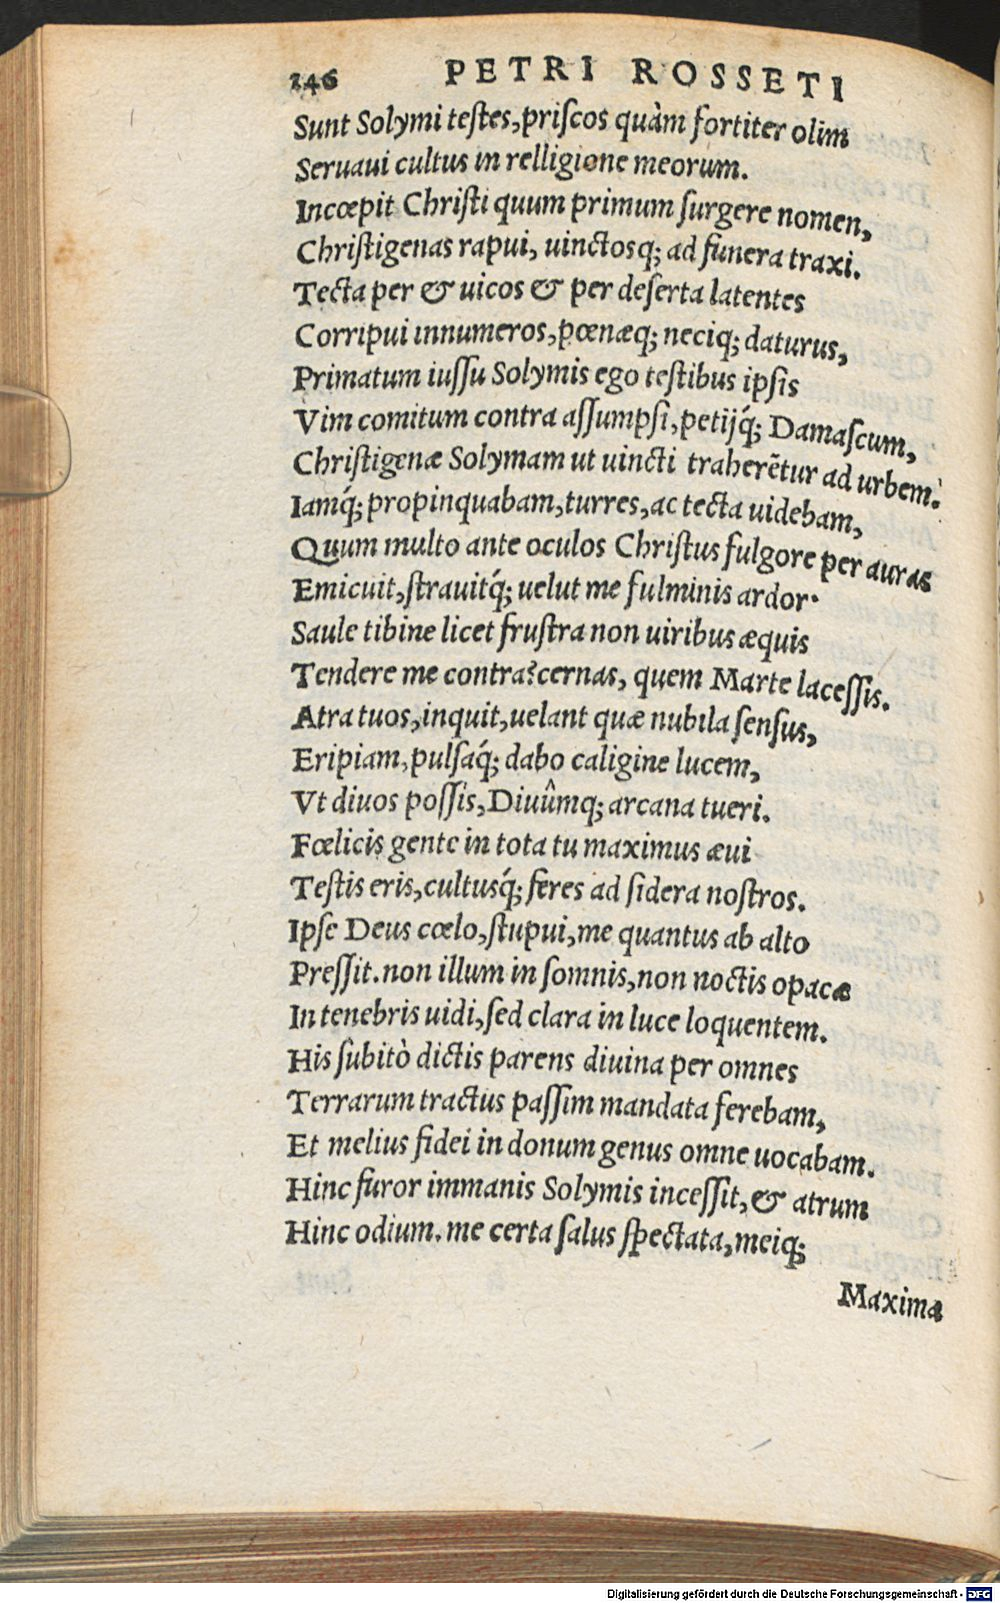 246 PETRI ROSSETI
Sunt Solymi teſtes, priſcos quàm fortiter olim
Seruaui cultus in relligione meorum.
Incœpit Chriſti quum primum ſurgere nomen,
Chriſtigenas rapui, uinctosq; ad funera traxi.
Tecta per & uicos & per deſerta latentes
Corripui innumeros, pœnæq; neciq; daturus,
Primatum iuſſu Solymis ego teſtibus ipſis
Vim comitum contra aſſumpſi, petijq́; Damaſcum,
Chriſtigenæ Solymam ut uincti traherẽtur ad urbem.
Iamq́; propinquabam, turres, ac tecta uidebam,
Quum multo ante oculos Chriſtus fulgore per auras
Emicuit, ſtrauitq́; uelut me fulminis ardor.
Saule tibine licet fruſtra non uiribus æquis
Tendere me contra? cernas, quem Marte laceſſis.
Atra tuos, inquit, uelant quæ nubila ſenſus,
Eripiam, pulſaq́; dabo caligine lucem,
Vt diuos poſſis, Diuûmq; arcana tueri.
Fœlicis gente in tota tu maximus æui
Teſtis eris, cultusq́; feres ad ſidera noſtros.
Ipſe Deus cœlo, ſtupui, me quantus ab alto
Preſſit. non illum in ſomnis, non noctis opacæ
In tenebris uidi, ſed clara in luce loquentem.
His ſubitò dictis parens diuina per omnes
Terrarum tractus paſſim mandata ferebam,
Et melius fidei in donum genus omne uocabam.
Hinc furor immanis Solymis inceſſit, & atrum
Hinc odium. me certa ſalus ſpectata, meiq;
Maxima
Digitalisierung gefördert durch die Deutsche Forschungsgemeinschaft - DFG